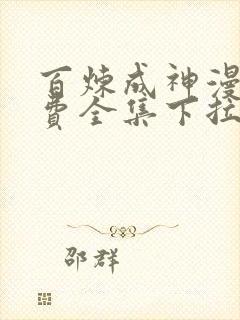 百炼成神漫
费全集下拉
邵群